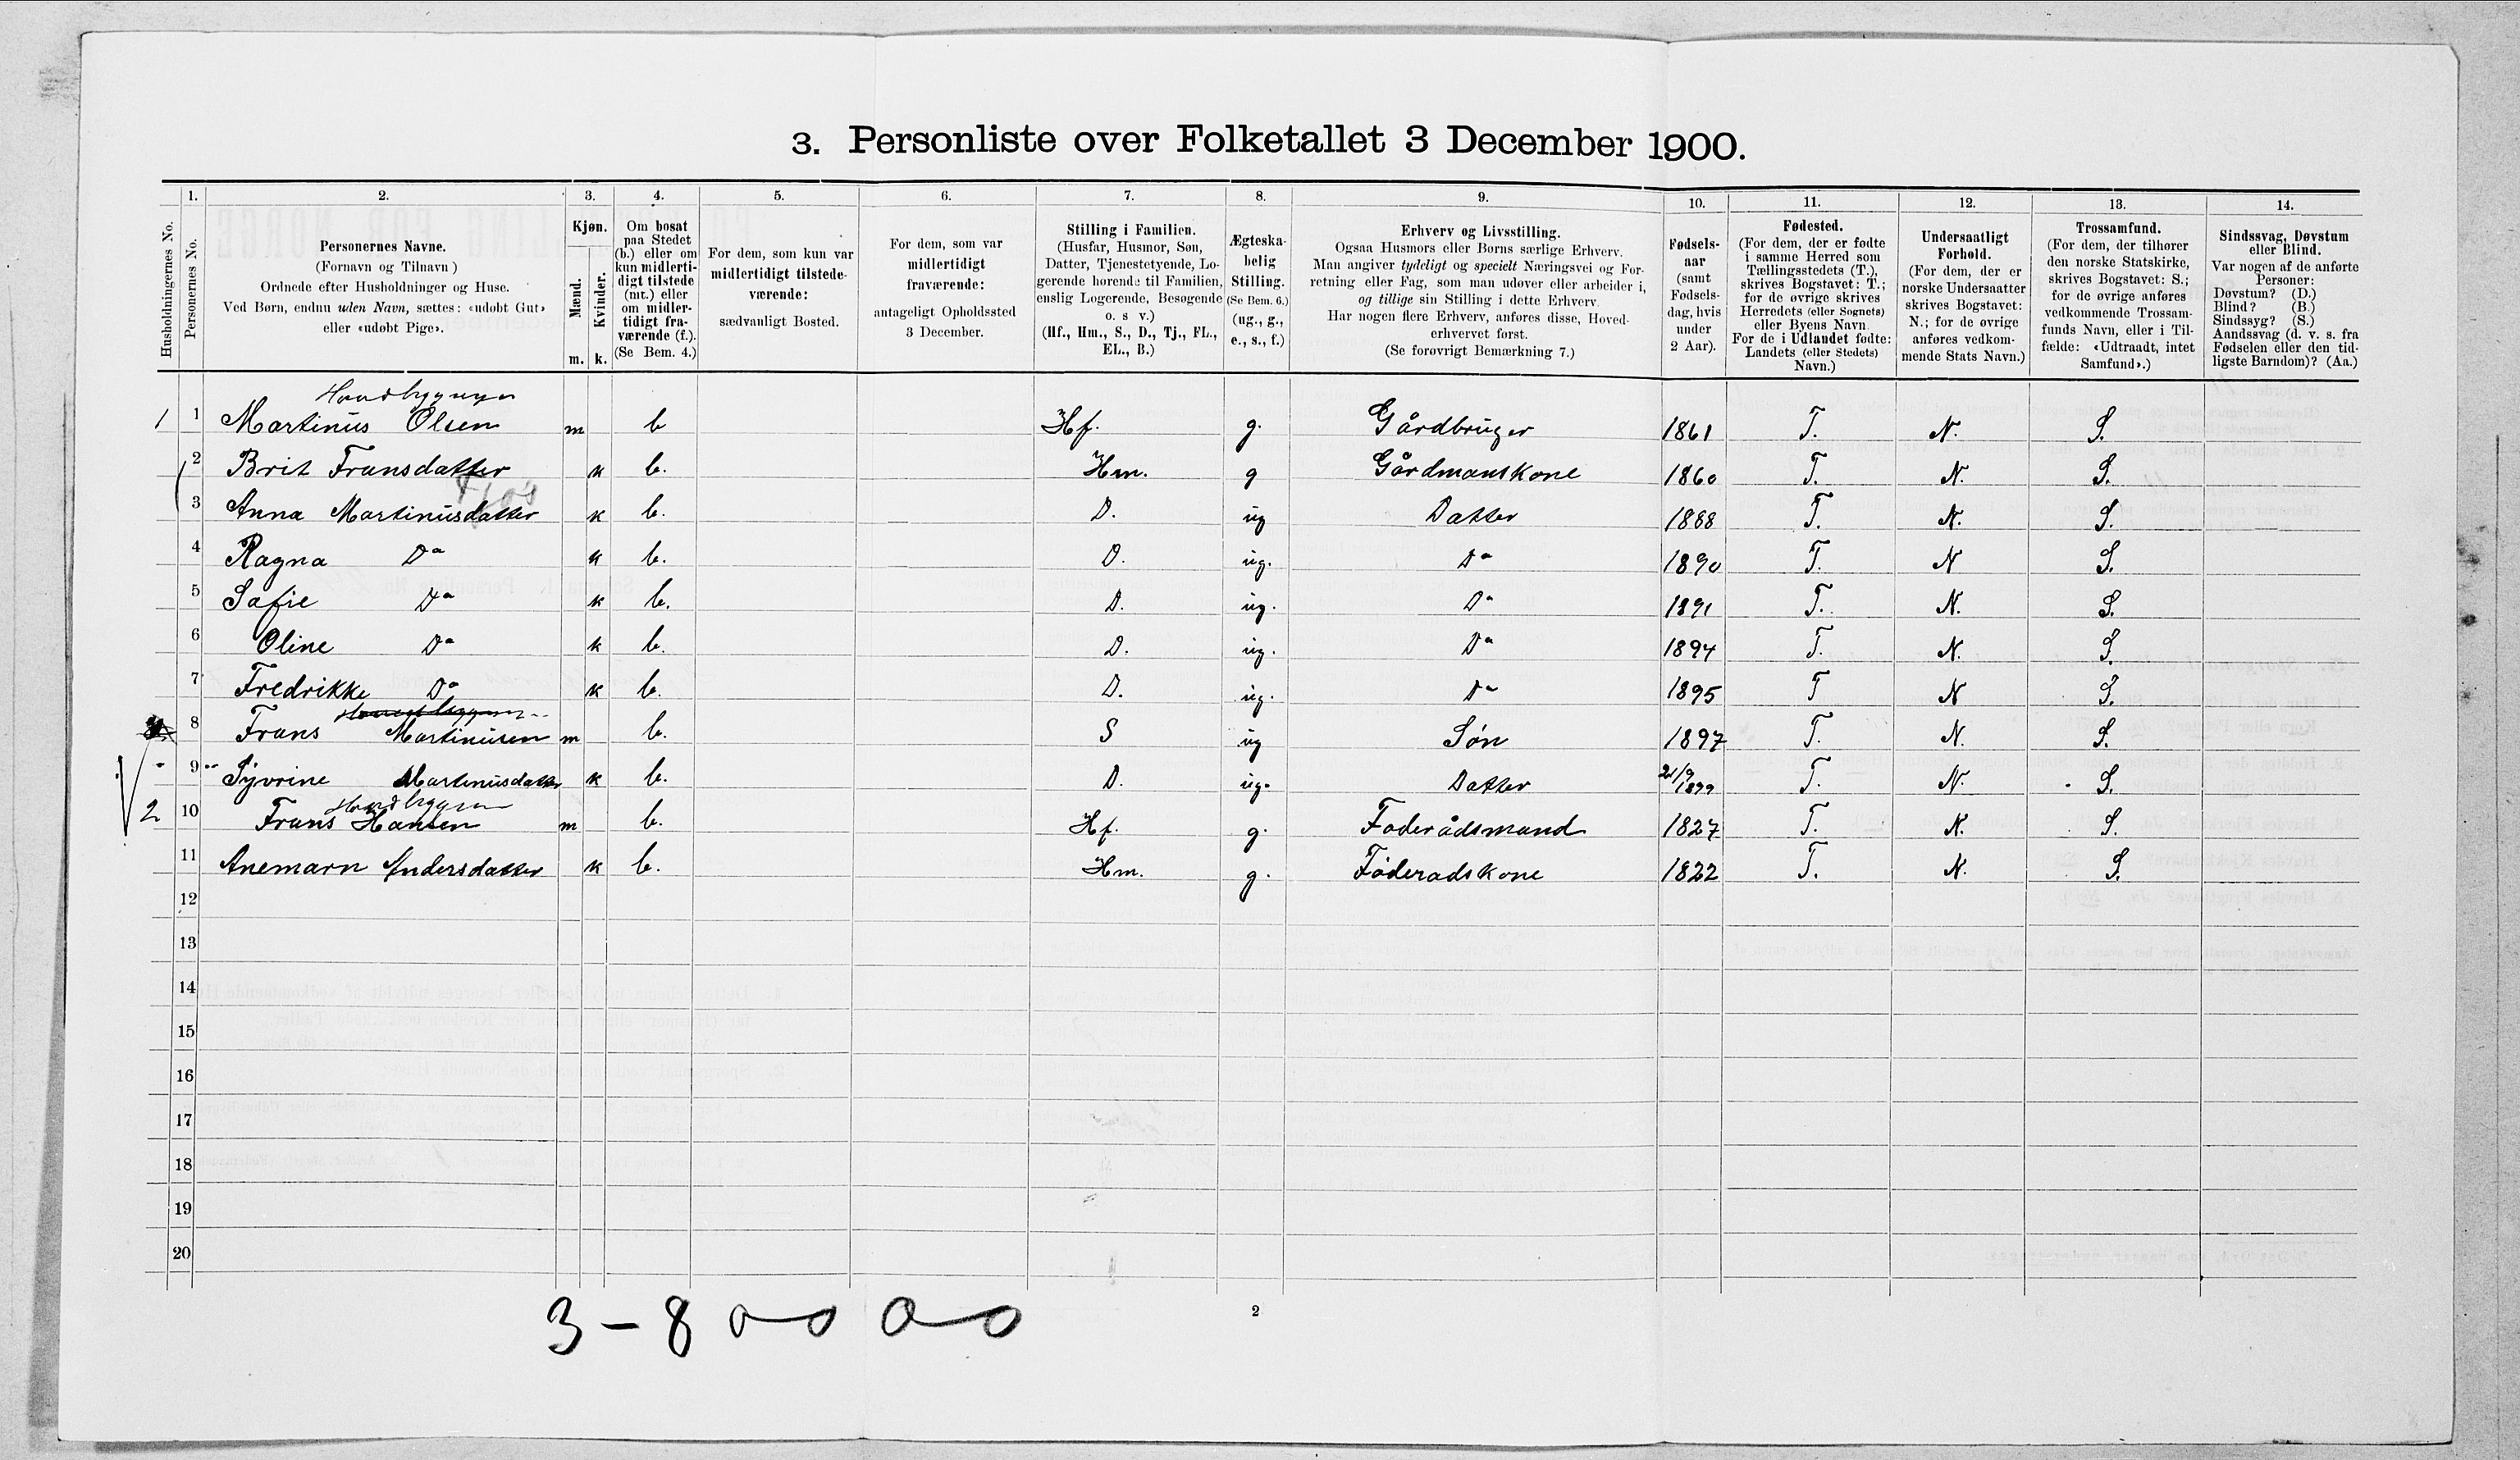 3. Personliste over Folketallet 3 December 1900.
1. 2. 3. 4. 5. 6. 7. 8. 9. 10. 11. 12. 13. 14.
Husholdningernes No.
Personernes No.
Personernes Navne.
(Fornavn og Tilnavn )
Ordnede efter Husholdninger og Huse.
Ved Børn, endnu uden Navn, sættes: «udøbt Gut»
eller «udøbt Pige».
Kjøn.
Mænd.
Kvinder.
m. k.
Om bosat
paa Stedet
(b.) eller om
kun midlerti-
digt tilstede
(mt.) eller
om midler-
tidigt fra-
værende (f.).
(Se Bem. 4.)
For dem, som kun var
midlertidigt tilstede-
værende:
sædvanligt Bosted.
For dem, som var
midlertidigt
fraværende:
antageligt Opholdssted
3 December.
Stilling i Familien.
(Husfar, Husmor, Søn,
Datter, Tjenestetyende, Lo-
gerende hørende til Familien,
enslig Logerende, Besøgende
o. s v.)
(Hf., Hm., S., D., Tj., FL.,
EL., B.)
Ægteska-
belig
Stilling.
(Se Bem. 6.)
(ug., g.,
e., s., f.)
Erhverv og Livsstilling.
Ogsaa Husmors eller Børns særlige Erhverv.
Man angiver tydeligt og specielt Næringsvei og For-
retning eller Fag, som man udøver eller arbeider i,
og tillige sin Stilling i dette Erhverv.
Har nogen flere Erhverv, anføres disse, Hoved-
erhvervet først.
(Se forøvrigt Bemærkning 7.)
Fødsels-
aar
(samt
Fødsels-
dag, hvis
under
2 Aar).
Fødested.
(For dem, der er fødte
i samme Herred som
Tællingsstedets (T.),
skrives Bogstavet: T.;
for de øvrige skrives
Herredets (eller Sognets)
eller Byens Navn.
For de i Udlandet fødte:
Landets (eller Stedets)
Navn.)
Undersaatligt
Forhold.
(For dem, der er
norske Undersaatter
skrives Bogstavet:
N.; for de øvrige
anføres vedkom-
mende Stats Navn.)
Trossamfund.
(For dem, der tilhører
den norske Statskirke,
skrives Bogstavet: S.;
for de øvrige anføres
vedkommende Trossam-
funds Navn, eller i Til-
fælde: «Udtraadt, intet
Samfund».)
Sindssvag, Døvstum
eller Blind.
Var nogen af de anførte
Personer:
Døvstum? (D.)
Blind? (B.)
Sindssyg? (S.)
Aandssvag (d. v. s. fra
Fødselen eller den tid-
ligste Barndom)? (Aa.)
1 1 Martinus Olsen m b Hf. g. Gårdbruger 1861 T. N. S.
2 Brit Fransdatter k b. Hm. g Gårdmanskone 1860 T. N. S.
3 Anna Martinusdatter k b. D. ug Datter 1888 T. N. S.
4 Ragna Do k b. D. ug. Do 1890 T. N S.
5 Safie Do k b. D. ug. Do 1891 T. N. S.
6 Oline Do k b. D. ug. Do 1894 T. N. S.
7 Fredrikke Do k b. D. ug. Do 1895 T N S.
8 Frans Martinusen m b. S ug Søn 1897 T. N. S.
9 Syvrine Martinusdatter k b. D. ug. Datter 21/9 1899 T. N. S.
2 10 Frans Hansen m b. Hf. g. Foderådsmand 1827 T. N. S.
11 Anemarn Andersdatter k b. Hm. g. Føderadskone 1822 T. N. S.
12
13
14
15
16
17
18
19
20
3 - 8 0-0 0-0
2